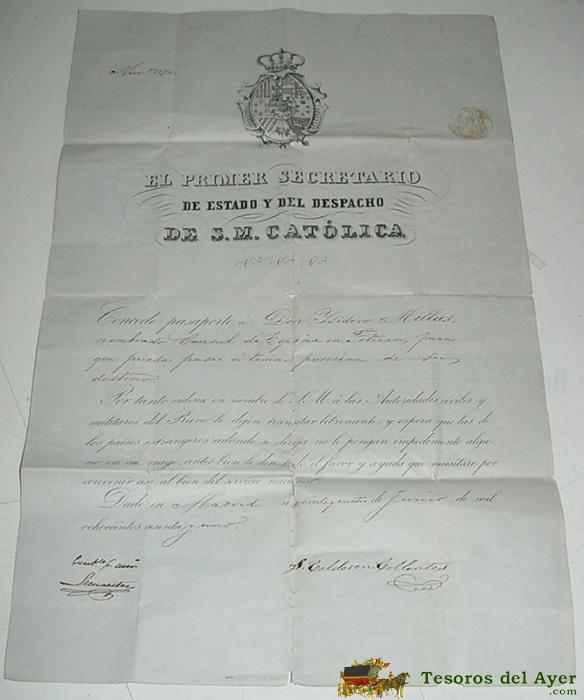 EL PRIMER SECRETARIO
DE ESTADO Y DEL DESPACHO
DE S.M. CATÓLICA
Concede pasaporte á Don Ysidoro Millas,
nombrado Consul de España en Tetuan, para
que pueda pasar á tomar posesion de su
destino.
Por tanto ordena en nombre de S.M. á las Autoridades civiles y
militares del Reino le dejen transitar libremente, y espera que las de
los paises extrangeros adonde se dirija no le pongan impedimento algu-
no en su viage, antes bien le den todo el favor y ayuda que necesitare por
convenir asi al bien del servicio nacional.
Dado en Madrid á veinte y cuatro de Junio de mil
ochocientos sesenta y uno.
S. Calderon Collantes
Tesoros del Ayer
.com